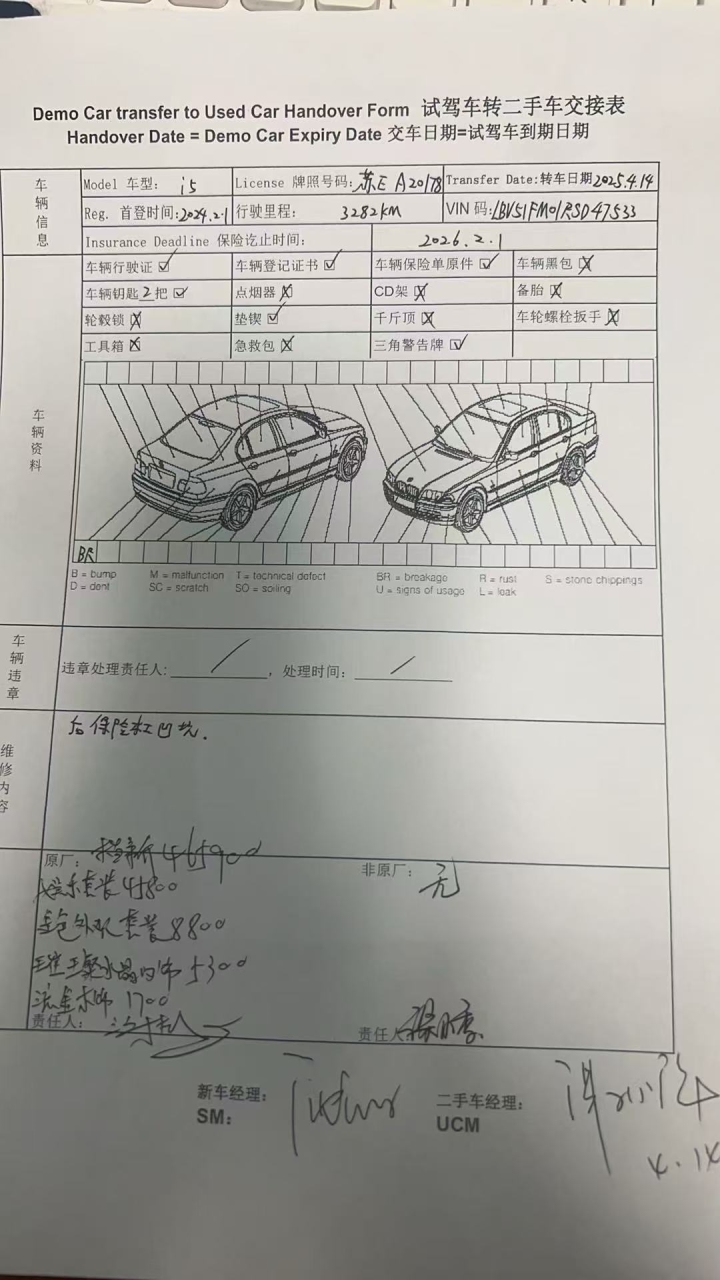 Demo Car transfer to Used Car Handover Form 试驾车转二手车交接表
Handover Date = Demo Car Expiry Date 交车日期=试驾车到期日期
车辆信息
Model 车型: i5 License 牌照号码: 苏E A20178 Transfer Date:转车日期 2025.4.14
Reg. 首登时间: 2024.2.1 行驶里程: 3282KM VIN 码: LBV51FM01RSD47533
Insurance Deadline 保险讫止时间: 2026.2.1
车辆资料
车辆行驶证 ☑ 车辆登记证书 ☑ 车辆保险单原件 ☑ 车辆黑包 ☒
车辆钥匙 2 把 ☑ 点烟器 ☒ CD架 ☒ 备胎 ☒
轮毂锁 ☒ 垫锲 ☑ 千斤顶 ☒ 车轮螺栓扳手 ☒
工具箱 ☒ 急救包 ☒ 三角警告牌 ☑
BR
B = bump M = malfunction T = technical defect BR = breakage R = rust S = stone chippings
D = dent SC = scratch SO = soiling U = signs of usage L = leak
车辆违章
违章处理责任人: / , 处理时间: /
维修内容
后保险杠凹坑.
原厂: 465900 非原厂: 无
套装 45800
套装 8800
水晶内饰 5300
流金木饰 1700
责任人: 责任人
新车经理: 二手车经理:
SM: UCM
4.14